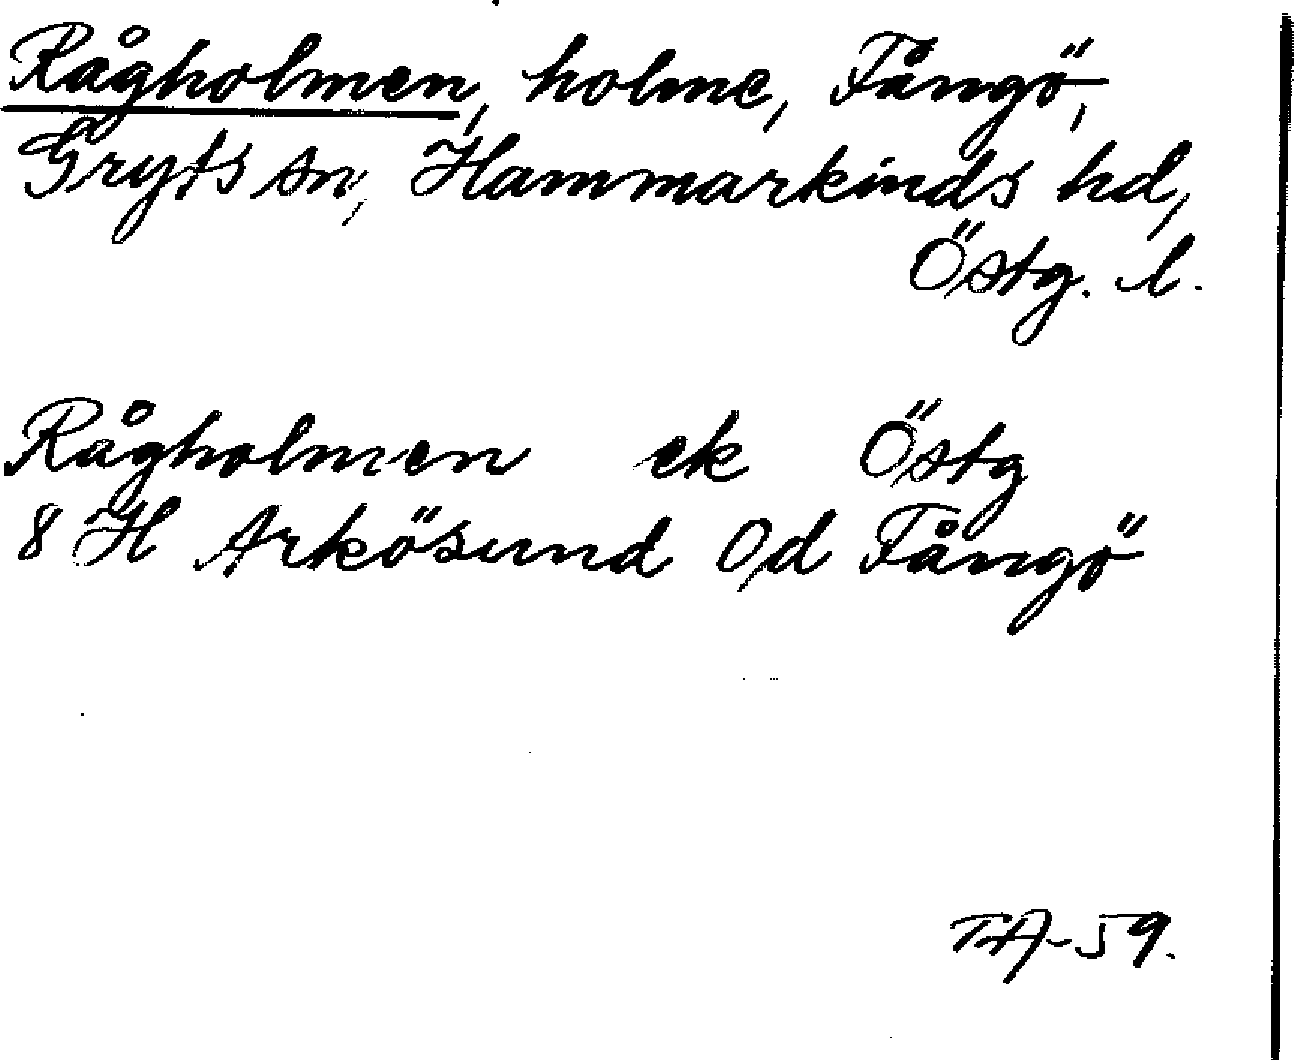 Rågholmen, holme, Fångö,
Gryts sn, Hammarkinds hd,
Östg. l.
Rågholmen ek Östg
8 H Arkösund 0/d Fångö
TA-59.